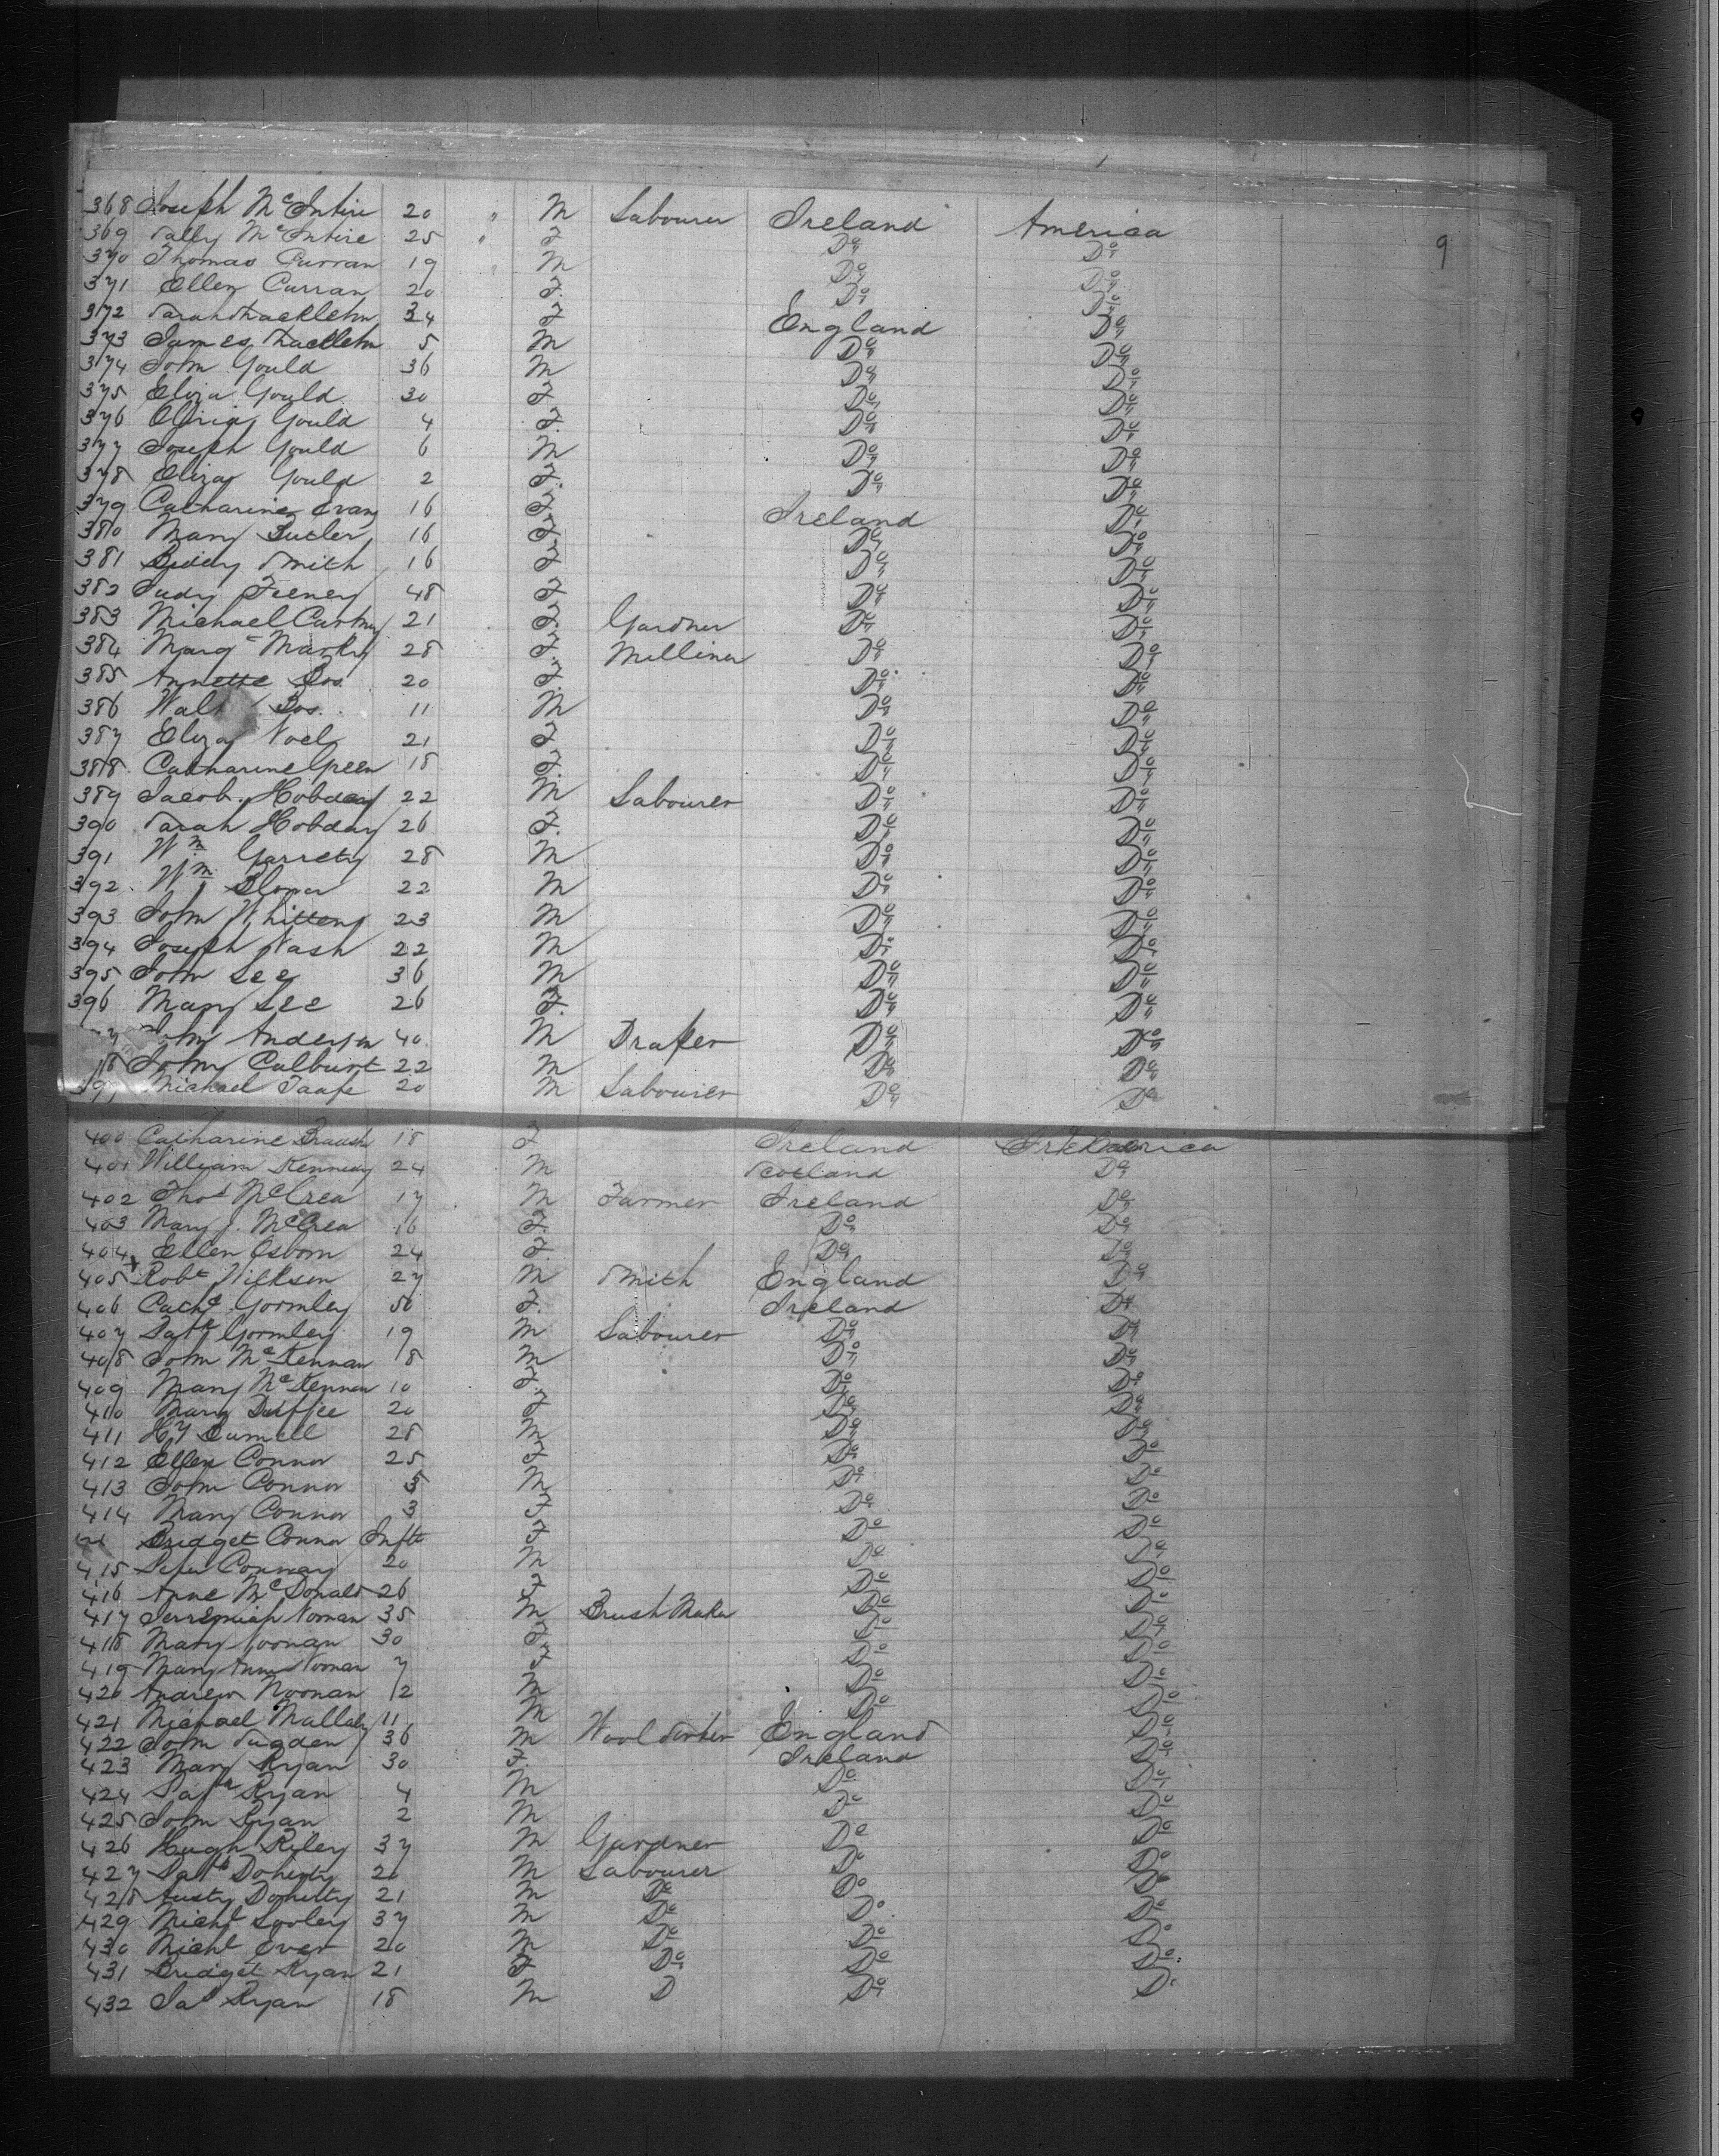 9
368 Joseph McIntire 20 " M Labourer Ireland America
369 Sally McIntire 25 " F Do Do
370 Thomas Curran 19 " M Do Do
371 Ellen Curran 20 F. Do Do
372 Sarah 34 F England Do
373 James 5 M Do Do
374 John Gould 36 M Do Do
375 Eliza Gould 30 F Do Do
376 Gould 4 F. Do Do
377 Joseph Gould 6 M Do Do
378 Eliza Gould 2 F. Do Do
379 Catharine Evans 16 F Ireland Do
380 Mary Butler 16 F Do Do
381 Biddy Smith 16 F Do Do
382 Judy Feeney 48 F Do Do
383 Michael 21 F. Gardner Do Do
384 Margt 28 F. Milliner Do Do
385 Annette 20 F. Do Do
386 11 M Do Do
387 Eliza Noel 21 F Do Do
388 Catharine Green 18 F. Do Do
389 Jacob Hobday 22 M Labourer Do Do
390 Sarah Hobday 26 F. Do Do
391 Wm Garrety 28 M Do Do
392 Wm 22 M Do Do
393 John 23 M Do Do
394 Joseph Nash 22 M Do Do
395 John Lee 36 M Do Do
396 Mary Lee 26 F. Do Do
7 John Anderson 40 M Draper Do Do
8 John Culburt 22 M Do Do
399 Michael Taafe 20 M Labourer Do Do
400 Catharine 18 F Ireland America
401 William Kennedy 24 M Scotland Do
402 Thos McCrea 17 M Farmer Ireland Do
403 Mary J. McCrea 16 F. Do Do
404 Ellen Osborn 24 F. Do Do
405 Robt Wilkson 27 M Smith England Do
406 Cathe Gormley 50 F. Ireland Do
407 Patk Gormley 19 M Labourer Do Do
408 John McKennan 8 M Do Do
409 Mary McKennan 10 F. Do Do
410 Mary Duffee 20 F Do Do
411 Hy 28 M Do Do
412 Ellen Connor 25 F Do Do
413 John Connor 5 M Do Do
414 Mary Connor 3 F Do Do
Bridget Connor Inft F Do Do
415 Peter Conway 20 M Do Do
416 Anne McDonald 26 F Do Do
417 Jerremiah Noonan 35 M Brush Maker Do Do
418 Mary Noonan 30 F Do Do
419 Mary Ann Noonan 7 F Do Do
420 Andrew Noonan 12 M Do Do
421 Michael 11 M Do Do
422 John Sugden 36 M Wool England Do
423 Mary Ryan 30 F. Ireland Do
424 Ryan 4 M Do Do
425 John Ryan 2 M Do Do
426 Hugh Riley 37 M Gardner Do Do
427 Patk Doherty 20 M Labourer Do Do
428 Austy Doherty 21 M Do Do Do
429 Michl Looley 37 M Do Do Do
430 Michl Ever 20 M Do Do Do
431 Bridget Ryan 21 F Do Do Do
432 Ryan 18 M D Do D